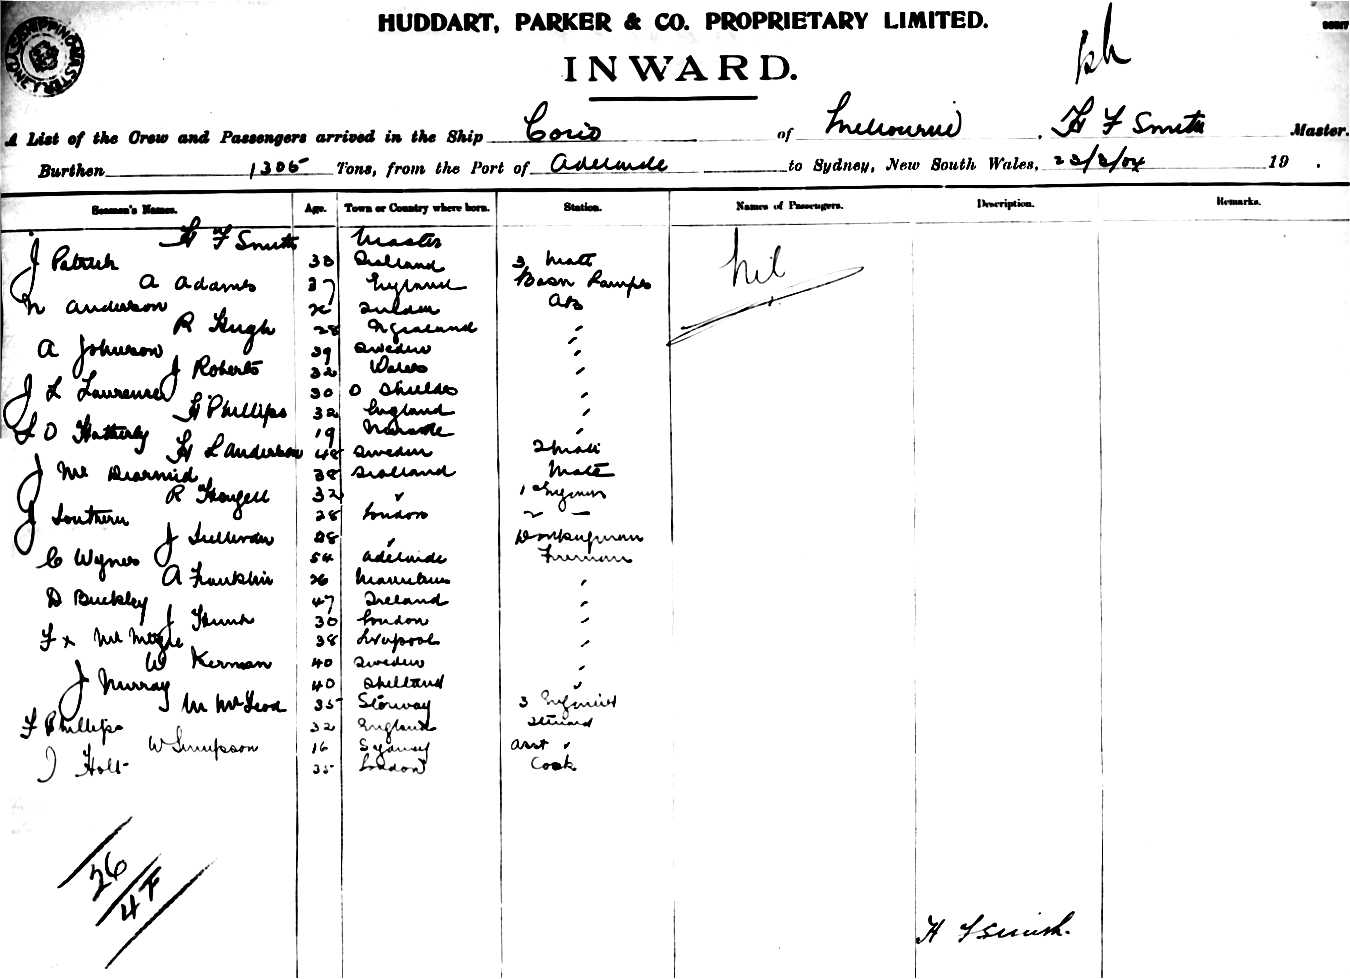 HUDDART, PARKER & CO. PROPRIETARY LIMITED.
INWARD.
A List of the Crew and Passengers arrived in the Ship Corio of Melbourne, H F Smith Master.
Burthen 1305 Tons, from the Port of Adelaide to Sydney, New South Wales, 19 .
Seamen's Names. Age. Town or Country where born. Station. Names of Passengers. Description. Remarks.
H F Smith Master
J Patrick 30 Scotland 3 Mate nil
A Adams 37 England Bosn Lamps
N Anderson 26 AB
R Hugh 28 "
A Johnson 39 Sweden "
J Roberts 32 Wales "
J L Laurensen 30 "
H Phillips 32 England "
F O Hatherly 19 "
H L Anderson 48 Sweden 2 Mate
J Mc Diarmid 38 Scotland Mate
R 32 " 1 Engineer
J Southern 28 London 2 —
J Sullivan 28 " Donkeyman
C Wynes 54 Adelaide Fireman
A Franklin 26 Mauritius "
D Buckley 47 Ireland "
J Hunt 30 London "
F x 38 Liverpool "
W Kerman 40 Sweden "
J Murray 40 Shetland "
M McLeod 35 Storway 3 Engineer
F Phillips 32 England Steward
W Simpson 16 Sydney Asst "
J Holt 35 London Cook
26
4 F
H F Smith.